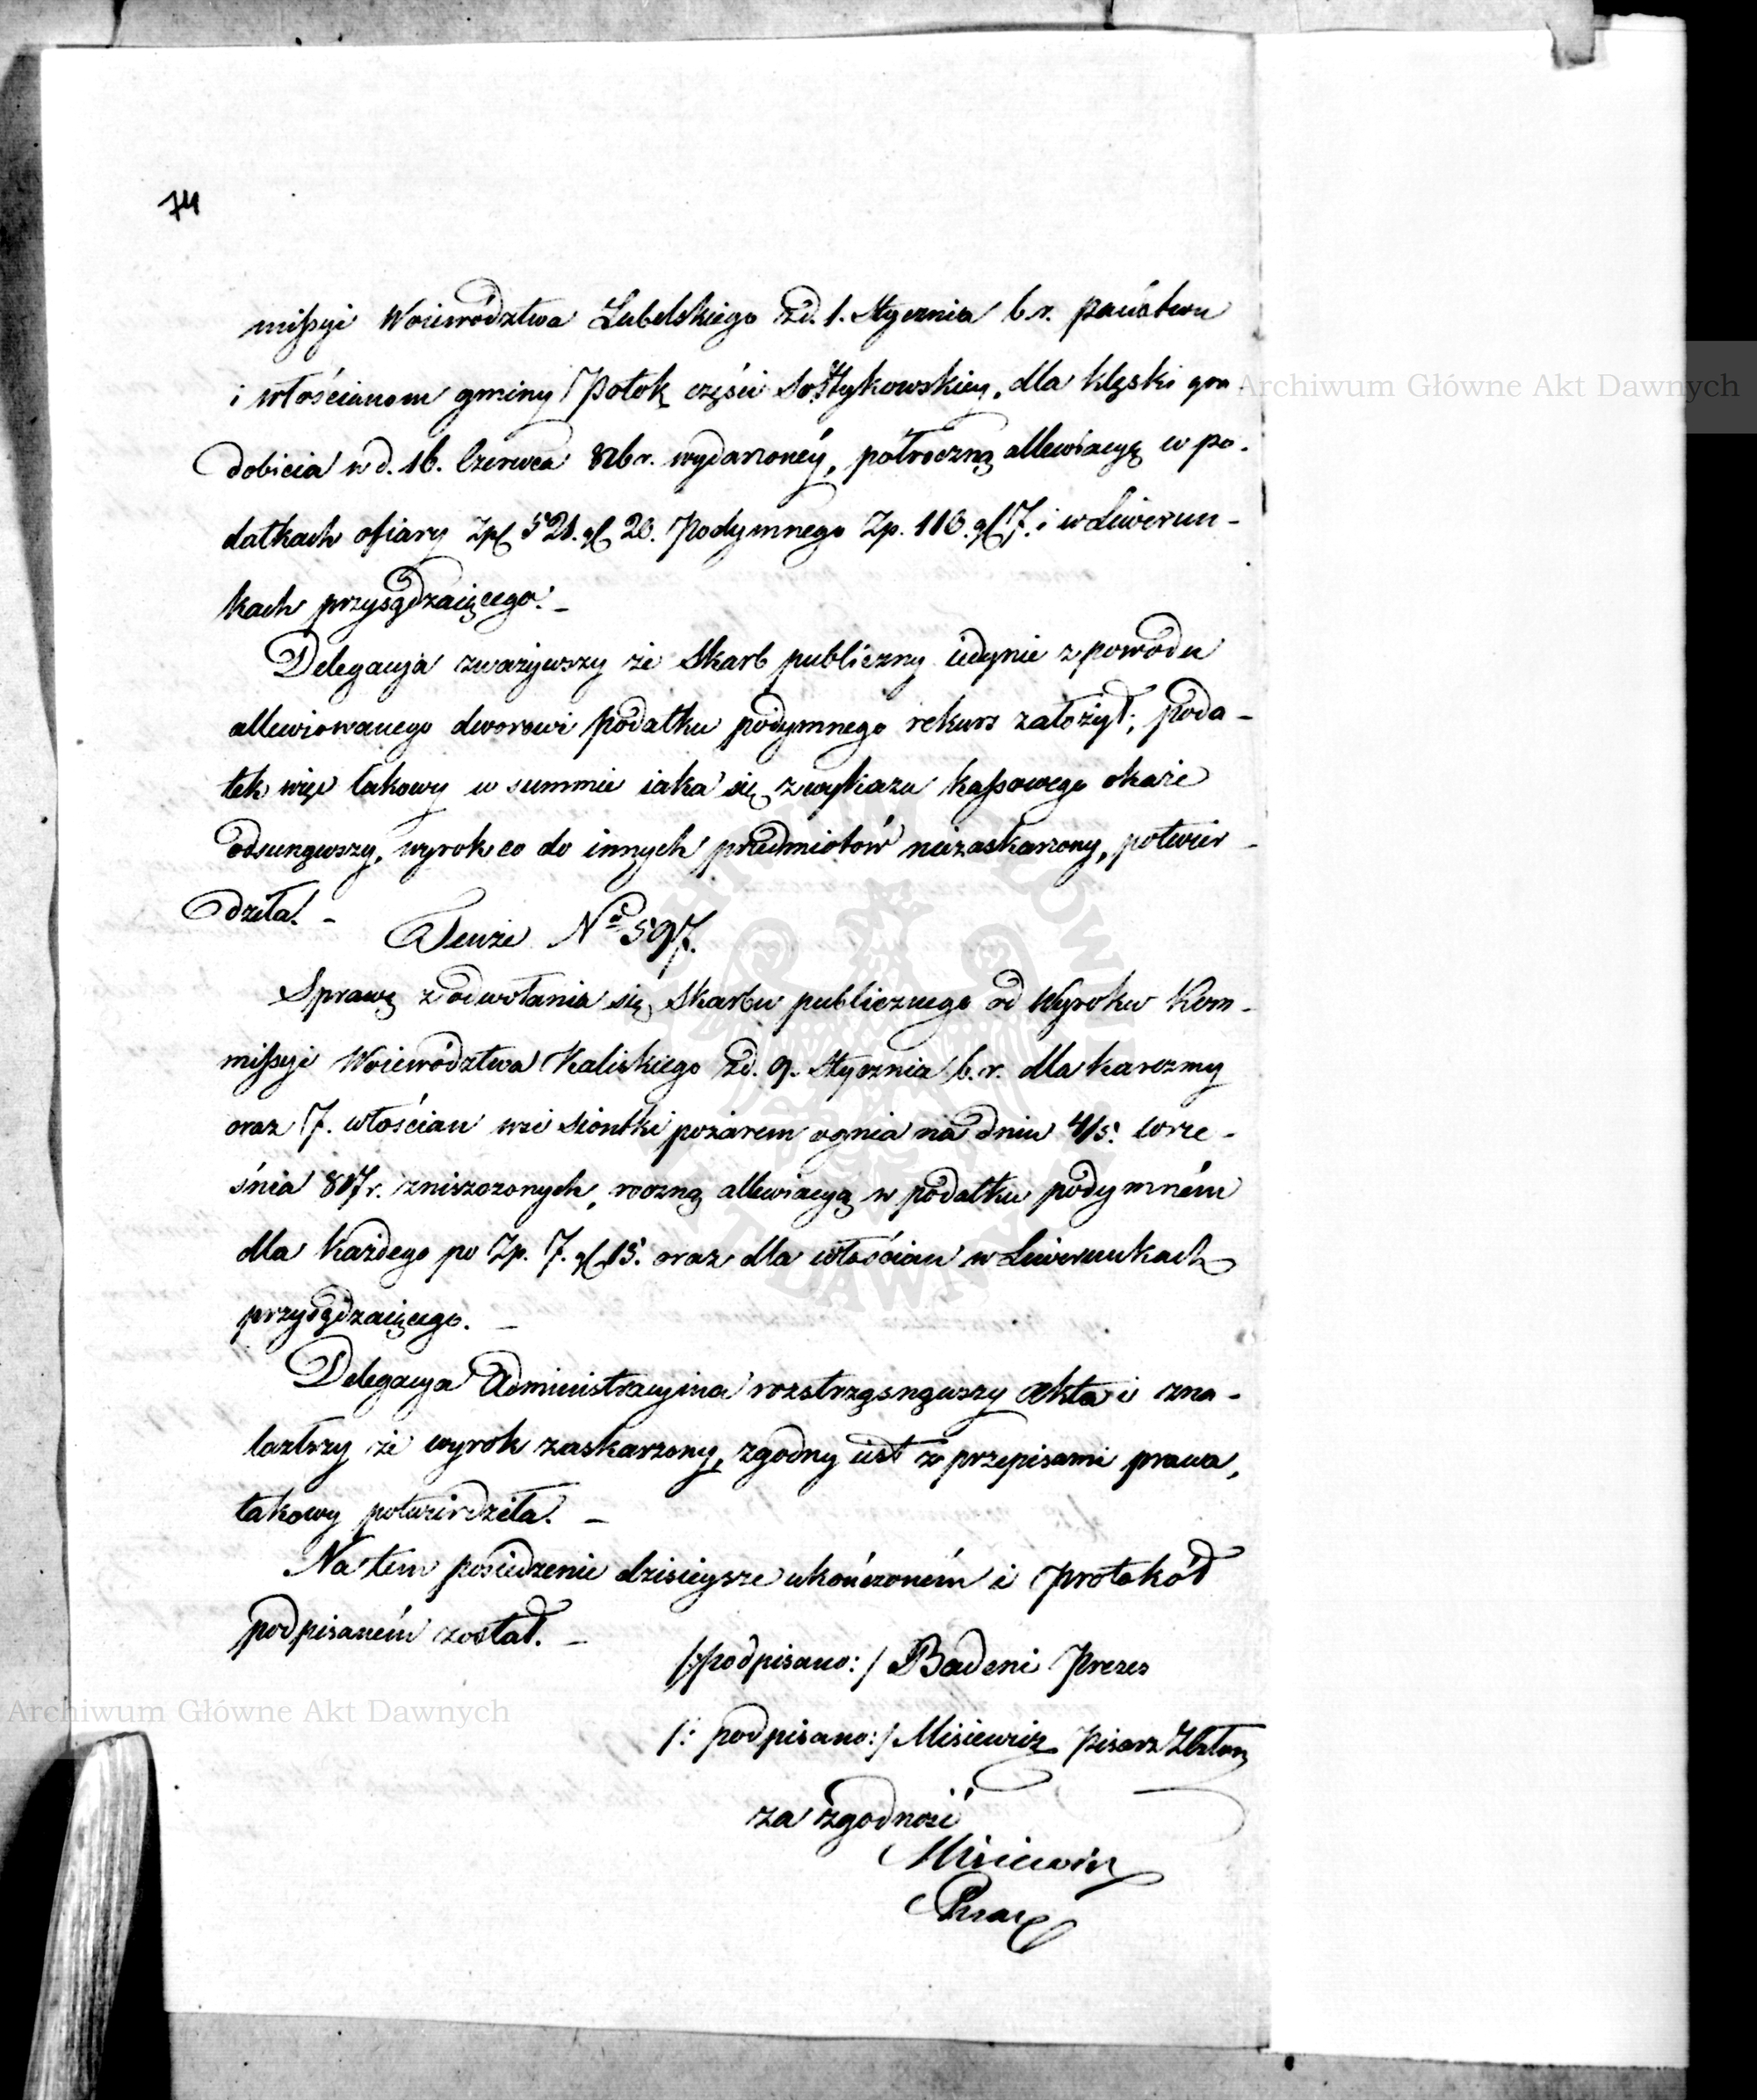 74
missyi Woiewództwa Lubelskiego z d. 1. Stycznia b.r. państwu
i włościanom gminy Potok części Sołtykowskiey, dla klęski gra
dobicia w d. 16. Czerwca 826 r. wydarzonéy, półroczną allewiacyę w po-
datkach ofiary Zpł 521. gr 20. Podymnego Zp. 116. gr 17. i w Liwerun-
kach przysądzaiącego. -
Delegacyja zważywszy że Skarb publiczny iedynie z powodu
allewiowanego dworowi podatku podymnego rekurs założył; poda-
tek więc takowy w summie iaka się z wykazu kassowego okaże
odsunąwszy, wyrok co do innych przedmiotów niezaskarżony, potwier-
dziła. -
Tenże No 597.
Sprawę z odwołania się Skarbu publicznego od Wyroku Kom-
missyi Woiewództwa Kaliskiego z d. 9. Stycznia b.r. dla karczmy
oraz 7. włościan wsi Siontki pożarem ognia na dniu 4/5. Wrze-
śnia 817 r. zniszczonych, roczną allewiacyą w podatku podymném
dla każdego po Zp. 7. gr 15. oraz dla włościan w Liwerunkach
przysądzaiącego. -
Delegacya Administracyina rozstrząsnąwszy akta i zna-
lazłszy że wyrok zaskarżony, zgodny iest z przepisami prawa,
takowy potwierdziła. -
Na tem posiedzenie dzisieysze ukończoném i protokół
podpisaném został. -
/:podpisano:/ Badeni Prezes
/: podpisano:/ Misiewicz Pisarz
za zgodność
Misiewicz
Pisarz
Archiwum Główne Akt Dawnych
Archiwum Główne Akt Dawnych